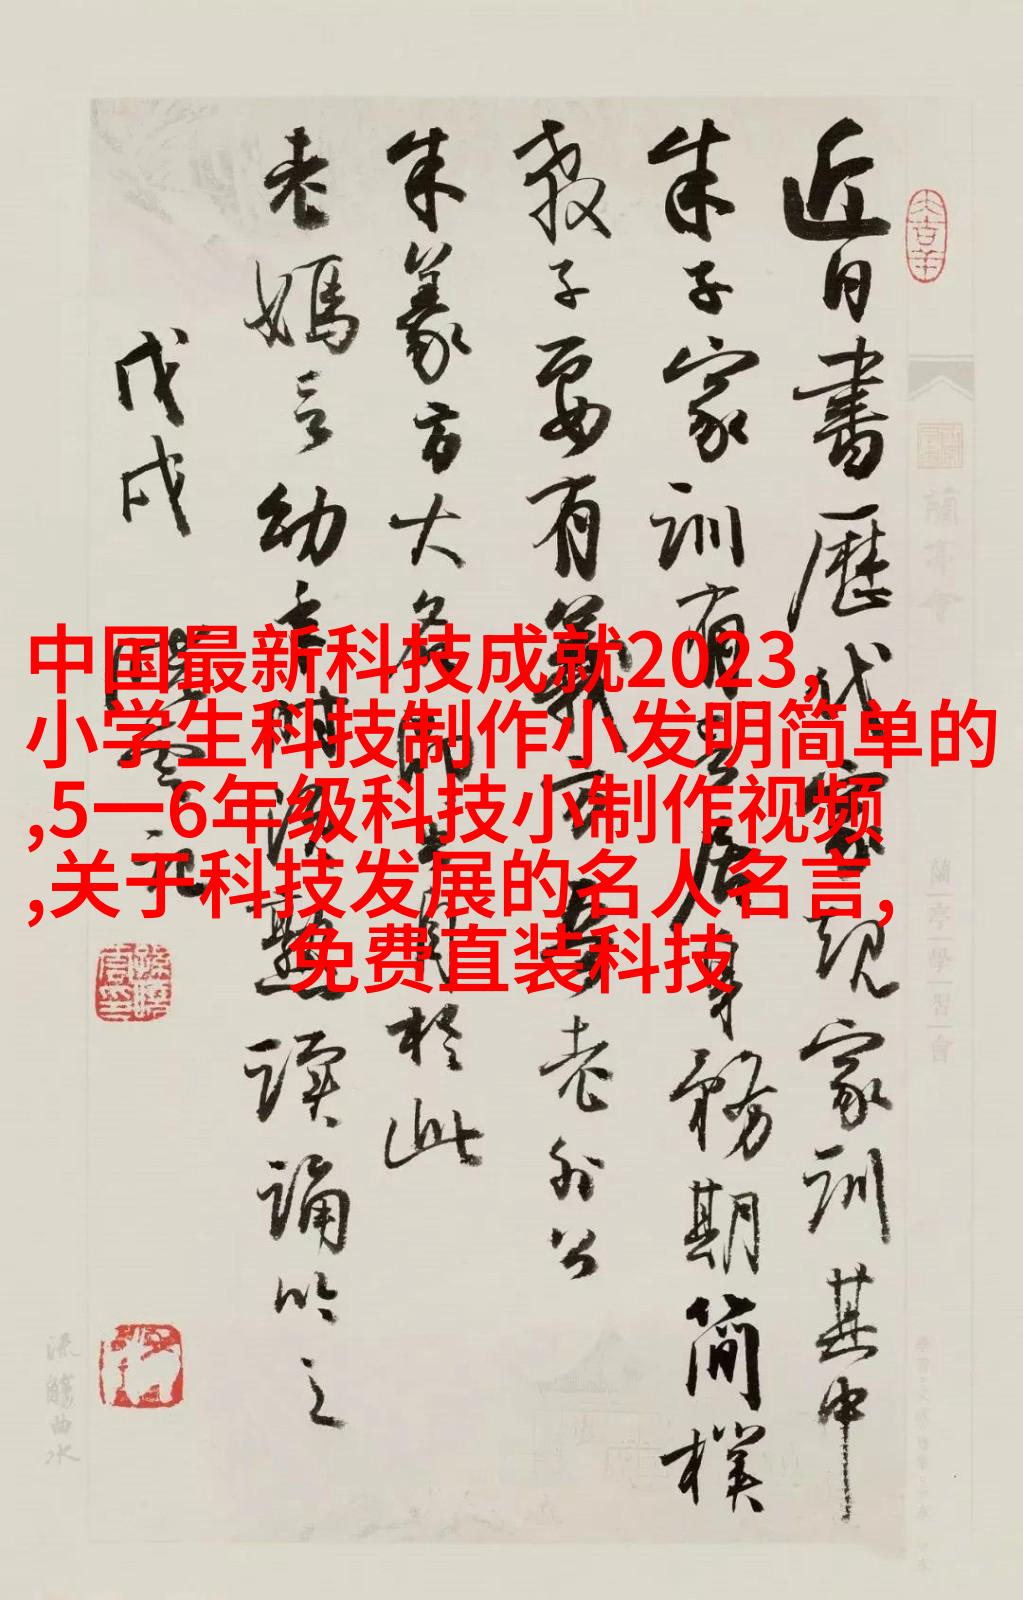 中国最新科技成就2023,
小学生科技制作小发明简单的
,5一6年级科技小制作视频
,关于科技发展的名人名言,
免费直装科技
近日書歷代規家訓其中
朱子家訓有居身務期簡樸
教子要有義方老外公
朱義方大名即自於此
老媽言幼年時須熟讀誦吟之
戊戌
記
蘭亭會
蘭亭學習會
流觴曲水